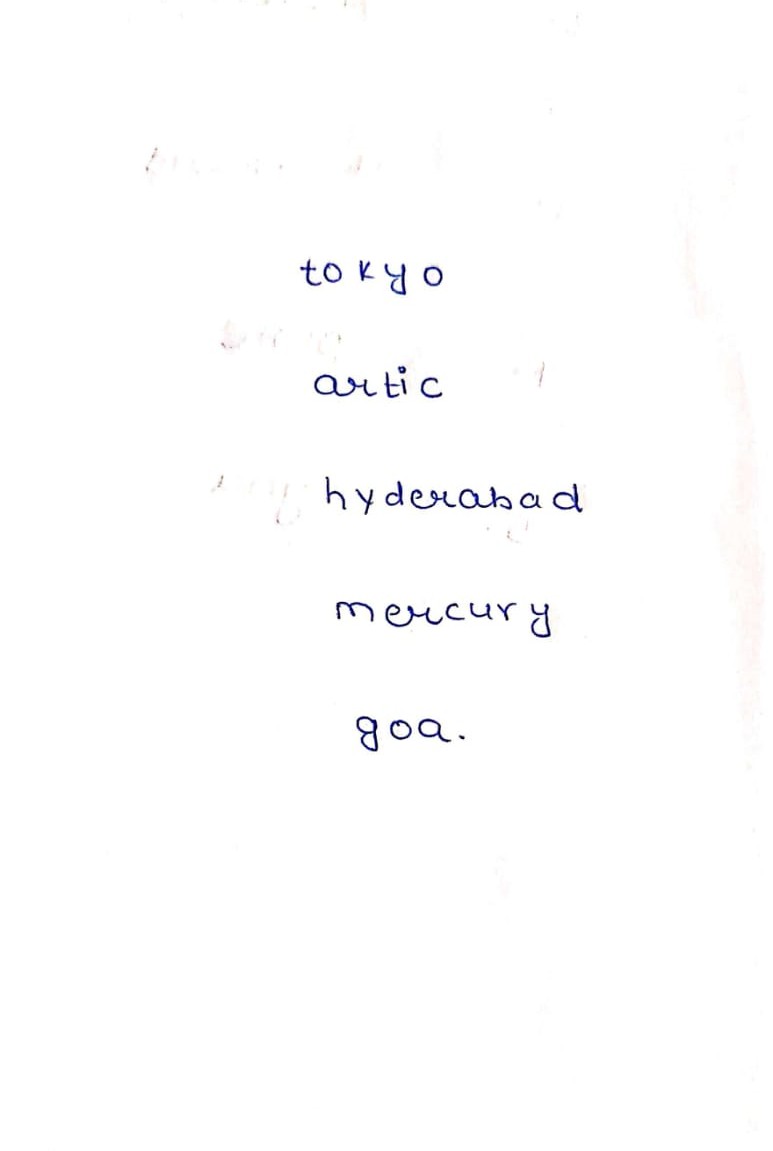 tokyo
artic
hyderabad
mercury
goa.